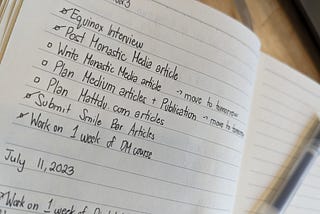 2023
Equinox Interview
Post Monastic Media article
Write Monastic Media article → move to tomorrow
Plan Medium articles + Publication → move to tomorrow
Plan Mattdu.com articles
Submit Smile Bar Articles
Work on 1 week of DM course
July 11, 2023
Work on 1 week of